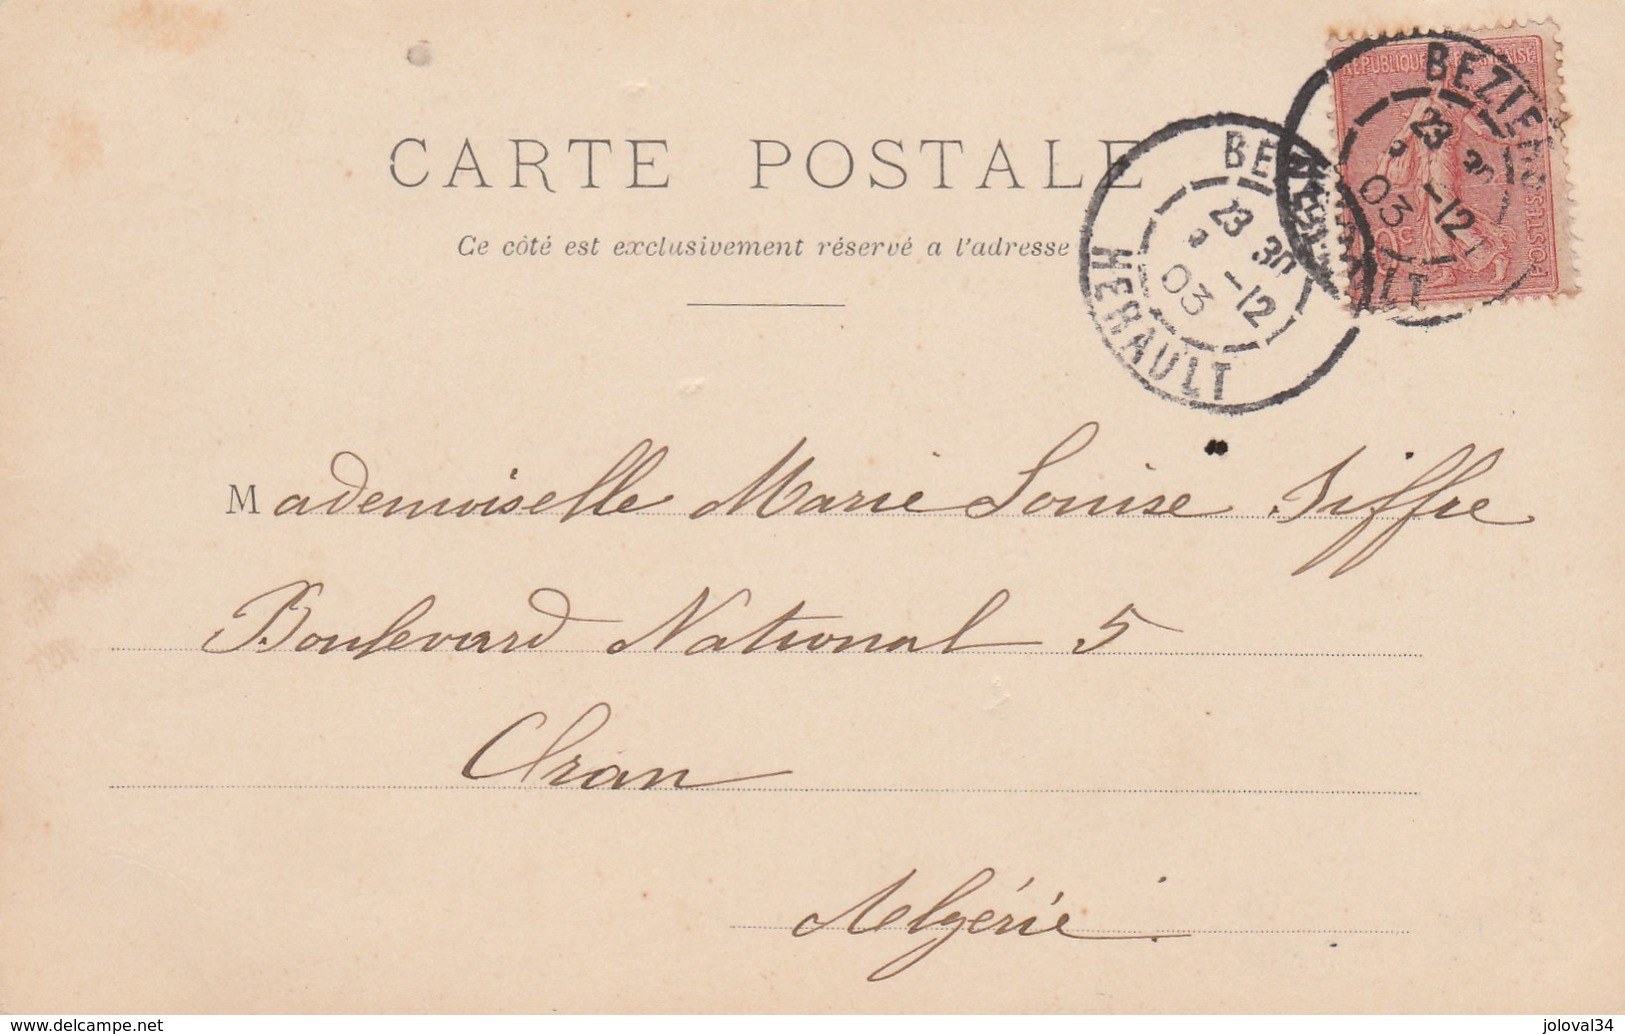 REPUBLIQUE FRANÇAISE
POSTES
BEZIERS
23 30
-12
03
HERAULT
BEZIERS
23 30
-12
03
HERAULT
CARTE POSTALE
Ce côté est exclusivement réservé a l'adresse
Mademoiselle Marie Louise Siffre
Boulevard National 5
Oran
Algérie
www.delcampe.net
joloval34